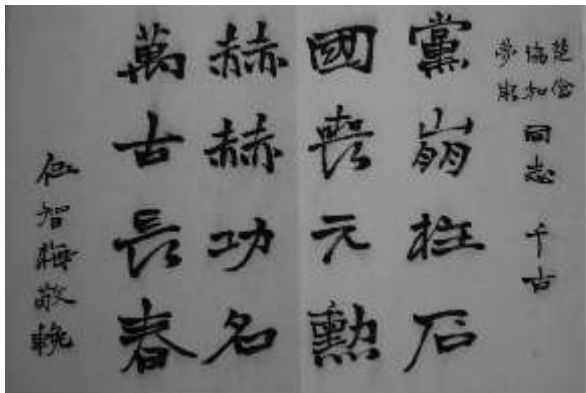 楚傖
協和
夢
同志千古
黨崩柱石
國喪元勳
赫赫功名
萬古長春
伍智梅敬輓